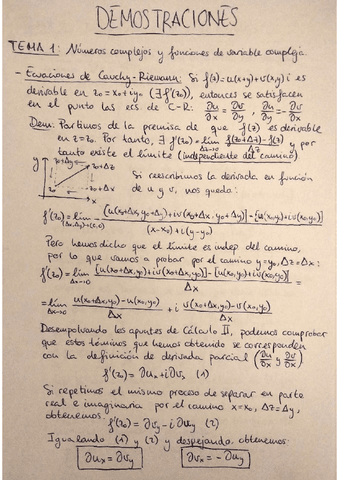 DEMOSTRACIONES
TEMA 1: Números complejos y funciones de variable compleja.
- Ecuaciones de Cauchy-Riemann: Si f(z)=u(x,y)+v(x,y)i es
derivable en z₀=x₀+iy₀ (∃f'(z₀)), entonces se satisfacen
en el punto las ecs de C-R: ∂u/∂x = ∂v/∂y, ∂u/∂y = -∂v/∂x
Dem: Partimos de la premisa de que f(z) es derivable
en z=z₀. Por tanto, ∃ f'(z₀)=lim Δz→0 (f(z₀+Δz)-f(z))/Δz y por
tanto existe el límite (independiente del camino)
y z₀+Δy z₀+Δz
z₀ z₀+Δx x
Si reescribimos la derivada en función
de u y v, nos queda:
f'(z₀)=lim (Δx,Δy)→(0,0) ([u(x₀+Δx,y₀+Δy)+iv(x₀+Δx,y₀+Δy)]-[u(x₀,y₀)+iv(x₀,y₀)])/((x-x₀)+i(y-y₀))
Pero hemos dicho que el límite es indep del camino,
por lo que vamos a probar por el camino y=y₀, Δz=Δx:
f'(z₀)=lim Δx→0 ([u(x₀+Δx,y₀)+iv(x₀+Δx,y₀)]-[u(x₀,y₀)+iv(x₀,y₀)])/Δx =
=lim Δx→0 (u(x₀+Δx,y₀)-u(x₀,y₀))/Δx + i (v(x₀+Δx,y₀)-v(x₀,y₀))/Δx
Desempolvando los apuntes de Cálculo II, podemos comprobar
que estos términos que hemos obtenido se corresponden
con la definición de derivada parcial (∂u/∂x y ∂v/∂x)
f'(z₀)= ∂uₓ+i∂vₓ (1)
Si repetimos el mismo proceso de separar en parte
real e imaginaria por el camino x=x₀, Δz=Δy,
obtenemos:
f'(z₀)= ∂v_y-i∂u_y (2)
Igualando (1) y (2) y despejando, obtenemos:
∂uₓ=∂v_y ∂vₓ=-∂u_y